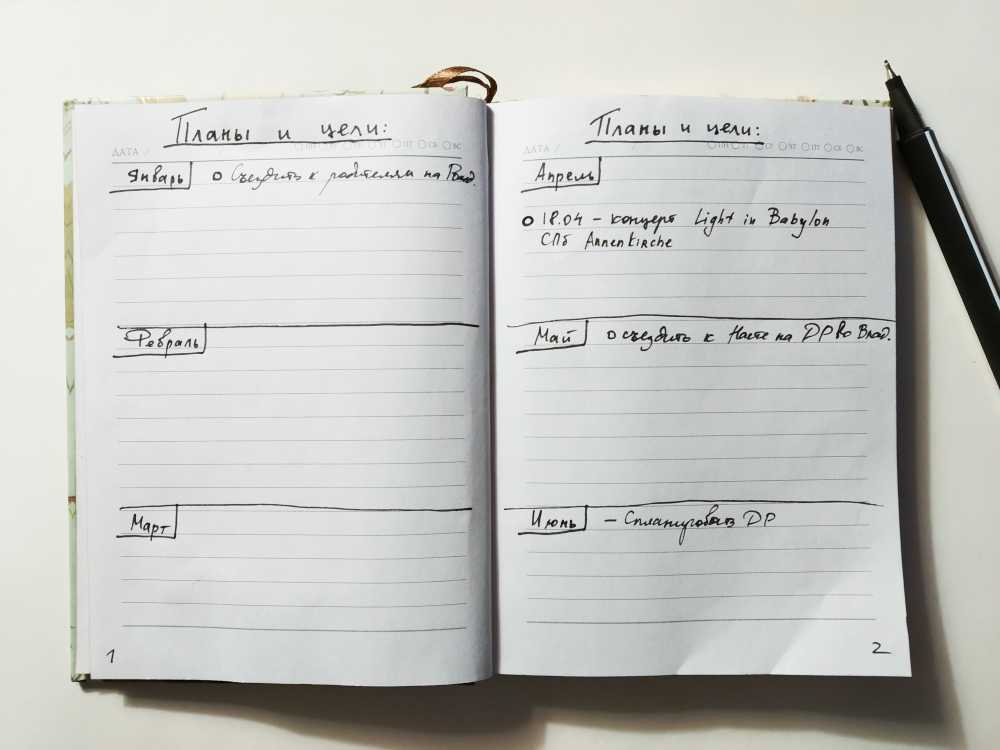 Планы и цели:
ДАТА / /
Январь
о Съездить к родителям на Рожд.
Февраль
Март
1
Планы и цели:
ДАТА / /
ВТ СР ЧТ ПТ СБ ВС
Апрель
о 18.04 – концерт Light in Babylon
СПб Annenkirche
Май
о съездить к Насте на ДР во Влад.
Июнь
– Спланировать ДР
2